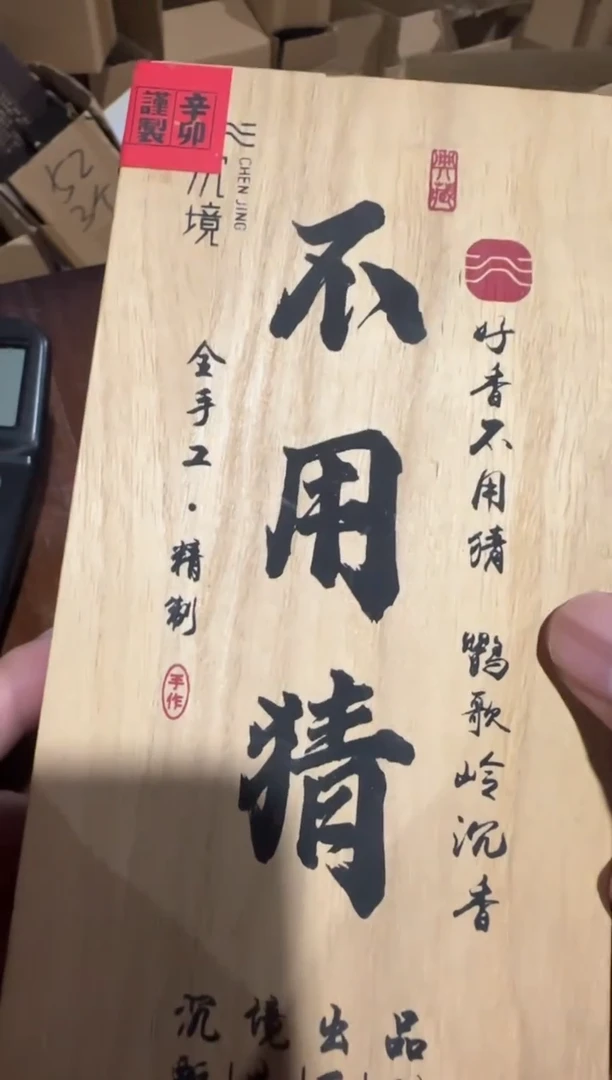 辛卯
謹製
沉境
CHEN JING
典藏
不用猜
好香不用猜 鹦歌岭沉香
全手工·精制
手作
沉境出品
52